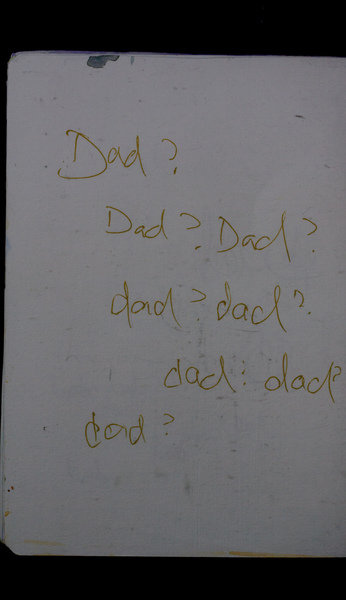 Dad?
Dad? Dad?
dad? dad?
dad? dad?
dad?